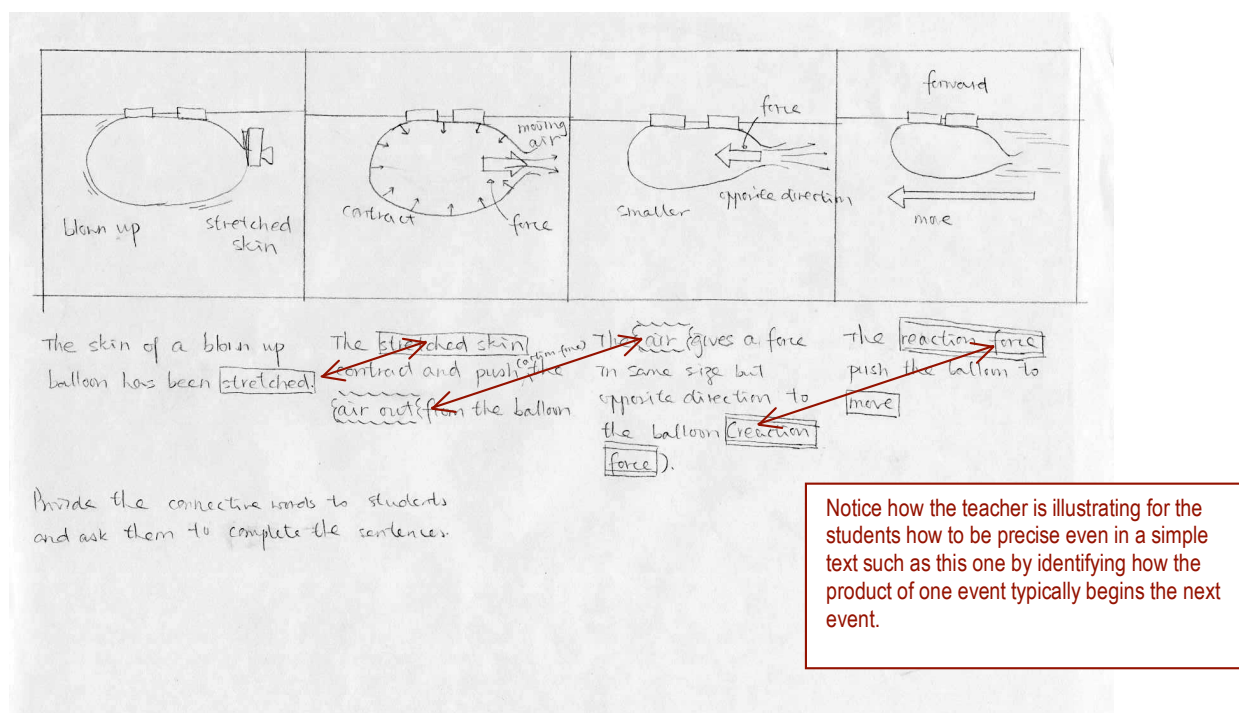 blown up
stretched
skin
contract
moving
air
force
force
smaller
opposite direction
forward
move
The skin of a blown up
balloon has been stretched.
The stretched skin
contract and push (action force) the
air out from the balloon
The air gives a force
in same size but
opposite direction to
the balloon (reaction
force).
The reaction force
push the balloon to
move
Provide the connective words to students
and ask them to complete the sentences.
Notice how the teacher is illustrating for the
students how to be precise even in a simple
text such as this one by identifying how the
product of one event typically begins the next
event.